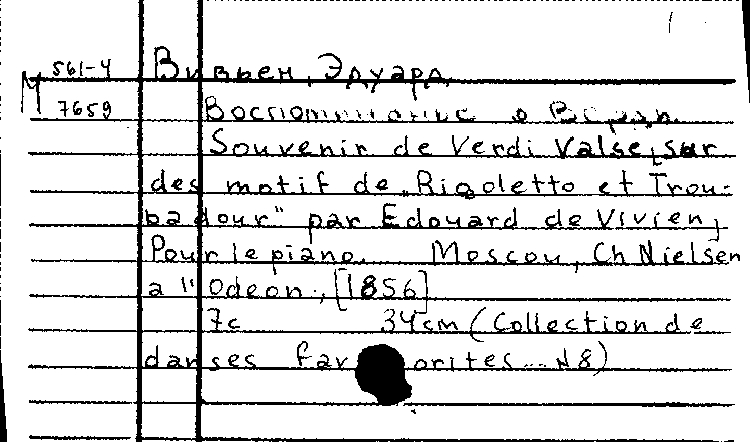 М 561-4 Виввен, Эдуард.
7659 Воспоминание о Верди.
Souvenir de Verdi Valse, sur
des motif de „Rigoletto et Trou-
badour" par Edouard de Vivien,
Pour le piano. Moscou, Ch Nielsen
a l'Odeon, [1856]
7c 34cm (Collection de
danses favorites... N8)